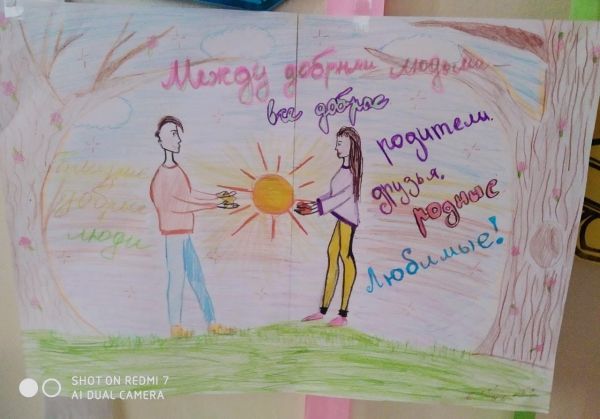 Между добрыми людьми
все доброе
родители,
друзья,
родные
Любимые!
добрые
люди
SHOT ON REDMI 7
AI DUAL CAMERA